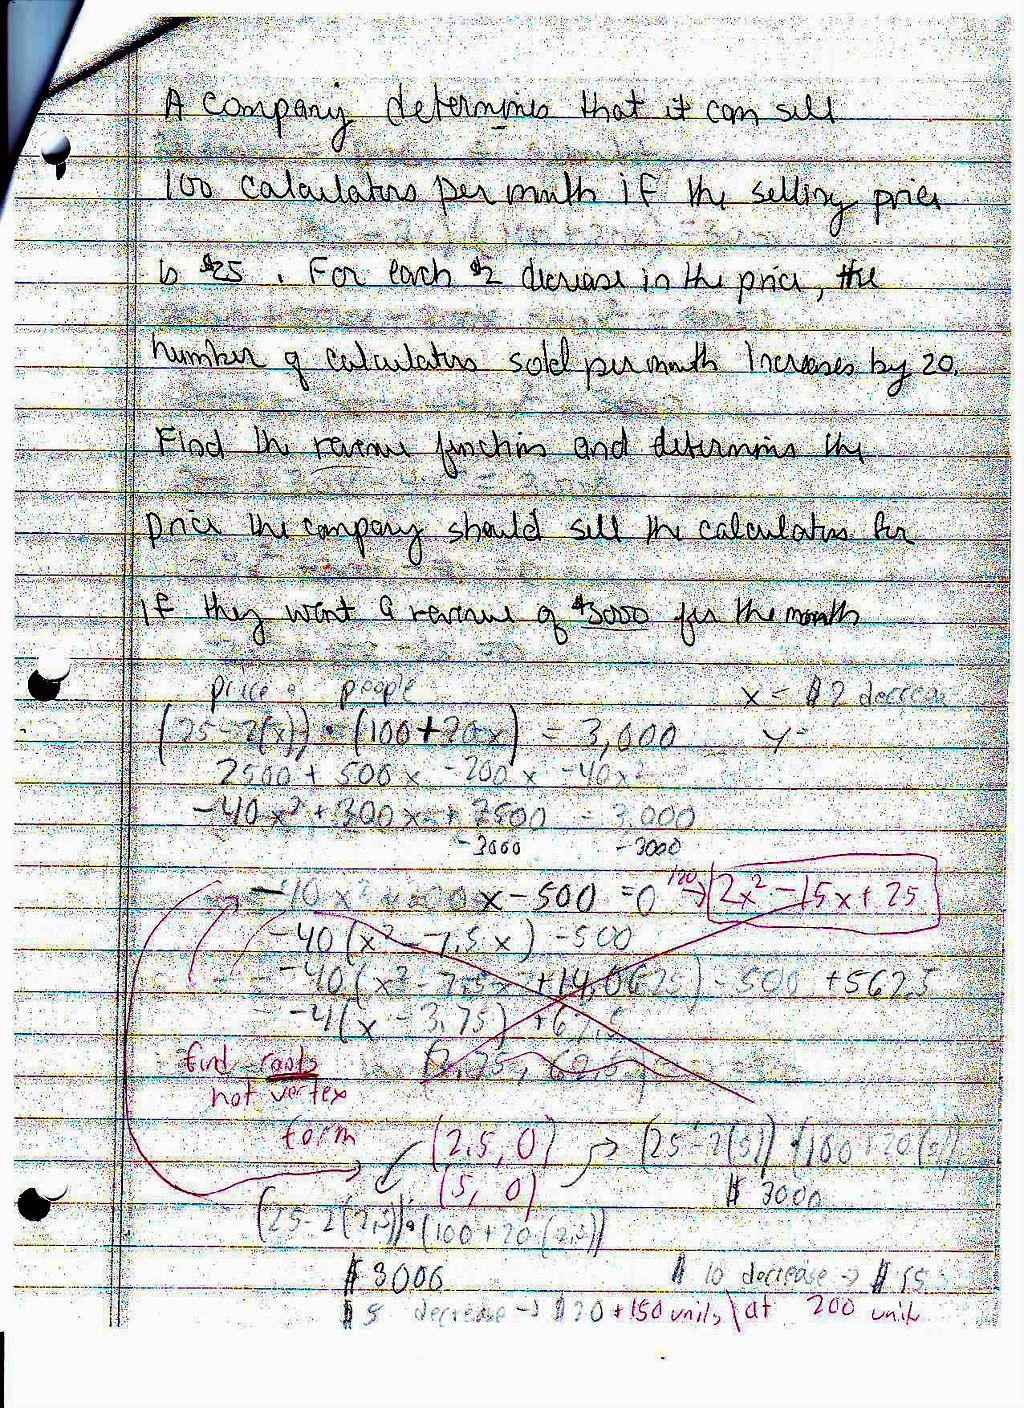 A company determines that it can sell
100 calculators per month if the selling price
is $25. For each $2 decrease in the price, the
number of calculators sold per month increases by 20.
Find the revenue function and determine the
price the company should sell the calculators for
if they want a revenue of $3000 for the month
price · people x = $2 decrease
(25-2(x)) · (100+20x) = 3,000 y=
2500 + 500x -200x -40x²
-40x² +300x + 2500 = 3,000
-3000 -3000
-40x² +300x - 500 = 0 /20 → 2x² - 15x + 25
-40(x² - 7.5x) -500
-40(x² - 7.5x +14.0625) - 500 +562.5
-4(x - 3.75) +62.5
(3.75, 62.5)
find roots
not vertex
form (2.5, 0) (25-2(5)) · (100+20(5))
(5, 0) $ 3000
(25-2(2.5)) · (100+20(2.5))
$ 3000 $ 10 decrease → $15
$5 decrease → $20 + 150 units \ at 200 units